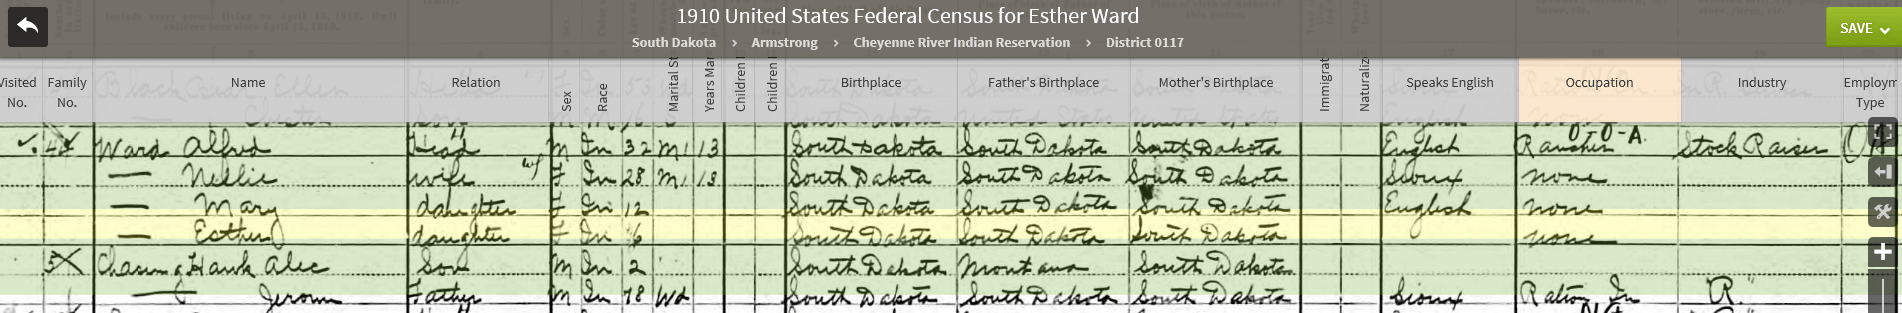 1910 United States Federal Census for Esther Ward
South Dakota › Armstrong › Cheyenne River Indian Reservation › District 0117
SAVE
Visited No. Family No. Name Relation Sex Race Marital St Years Mar Children Children Birthplace Father's Birthplace Mother's Birthplace Immigrat Naturaliz Speaks English Occupation Industry Employm Type
Ward Alfred Head M In 32 M1 13 South Dakota South Dakota South Dakota English Rancher 0-0-A. Stock Raiser
— Nellie wife wf F In 28 M1 13 South Dakota South Dakota South Dakota Sioux none
— Mary daughter F In 12 South Dakota South Dakota South Dakota English none
— Esther daughter F In 6 South Dakota South Dakota South Dakota none
Chasing Hawk Alec Son M In 2 South Dakota Montana South Dakota
— Jerom Father M In 78 Wd South Dakota South Dakota South Dakota Sioux Ration In "R."